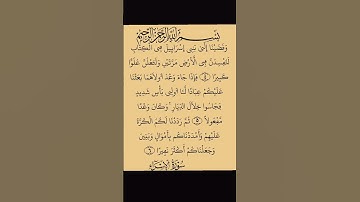 بسم الله الرحمن الرحيم
وَقَضَيْنَا إِلَىٰ بَنِي إِسْرَائِيلَ فِي الْكِتَابِ
لَتُفْسِدُنَّ فِي الْأَرْضِ مَرَّتَيْنِ وَلَتَعْلُنَّ عُلُوًّا
كَبِيرًا ٤ فَإِذَا جَاءَ وَعْدُ أُولَاهُمَا بَعَثْنَا
عَلَيْكُمْ عِبَادًا لَنَا أُولِي بَأْسٍ شَدِيدٍ
فَجَاسُوا خِلَالَ الدِّيَارِ وَكَانَ وَعْدًا
مَفْعُولًا ٥ ثُمَّ رَدَدْنَا لَكُمُ الْكَرَّةَ
عَلَيْهِمْ وَأَمْدَدْنَاكُمْ بِأَمْوَالٍ وَبَنِينَ
وَجَعَلْنَاكُمْ أَكْثَرَ نَفِيرًا ٦
سورة الإسراء